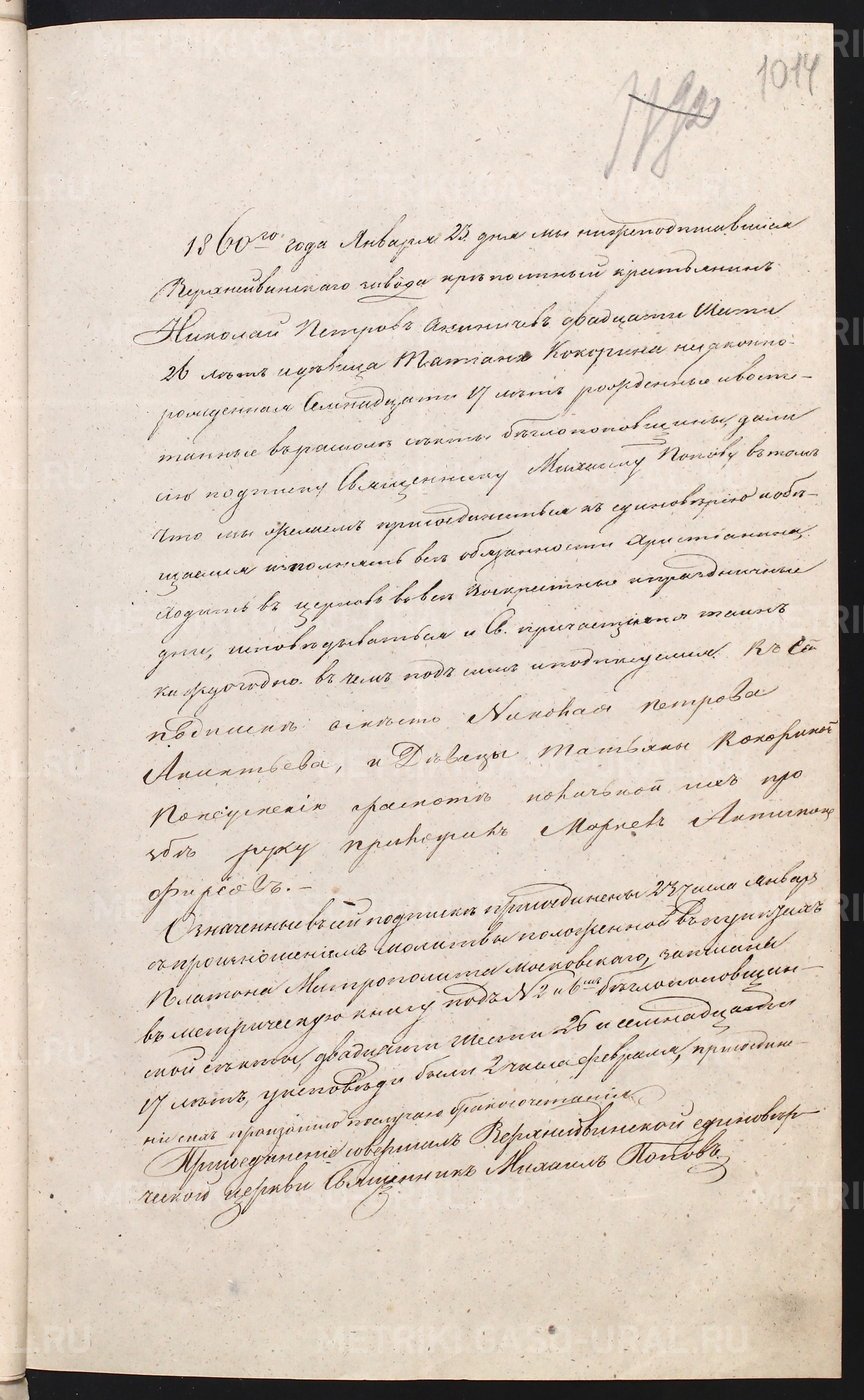 1014
1860го года Января 23 дня мы нижеподписавшиеся
Верхнейвинскаго завода крѣпостный крестьянинъ
Николай Петровъ двадцати шести
26 лѣтъ и дѣвица Татьяна Кокорина незаконно-
рожденная Семнадцати 17 лѣтъ рожденные и воспи-
танные въ расколѣ секты бѣглопоповщины, дали
сію подписку Священнику Михаилу Попову въ томъ
что мы желаемъ присоединиться къ единовѣрію и обѣ-
щаемся исполнять всѣ обязанности Христіанина,
ходить въ церковь во всѣ воскресные и праздничные
дни, исповѣдываться и Св. причащенія таинъ
каждогодно въ чемъ подъ симъ и подписуемся. Къ сей
подпискѣ вмѣсто Николая Петрова
и Дѣвицы Татьяны Кокориной
грамотѣ ихъ про
збѣ руку приложилъ
Фирсовъ.
Означенные въ сей подпискѣ присоединены 23 числа Января
съ произношеніемъ молитвы положенной въ пунктахъ
Платона Митрополита Московскаго, записаны
въ метрическую книгу подъ № 2 и 6мъ бѣглопоповщин-
ской секты, двадцати шести 26 и семнадцати
17 лѣтъ, у исповѣди были 2 числа февраля, присоедине-
ніе сихъ произошло по случаю бракосочетанія.
Присоединеніе совершилъ Верхнейвинской единовѣр-
ческой церкви Священникъ Михаилъ Поповъ
METRIKI.GASO-URAL.RU